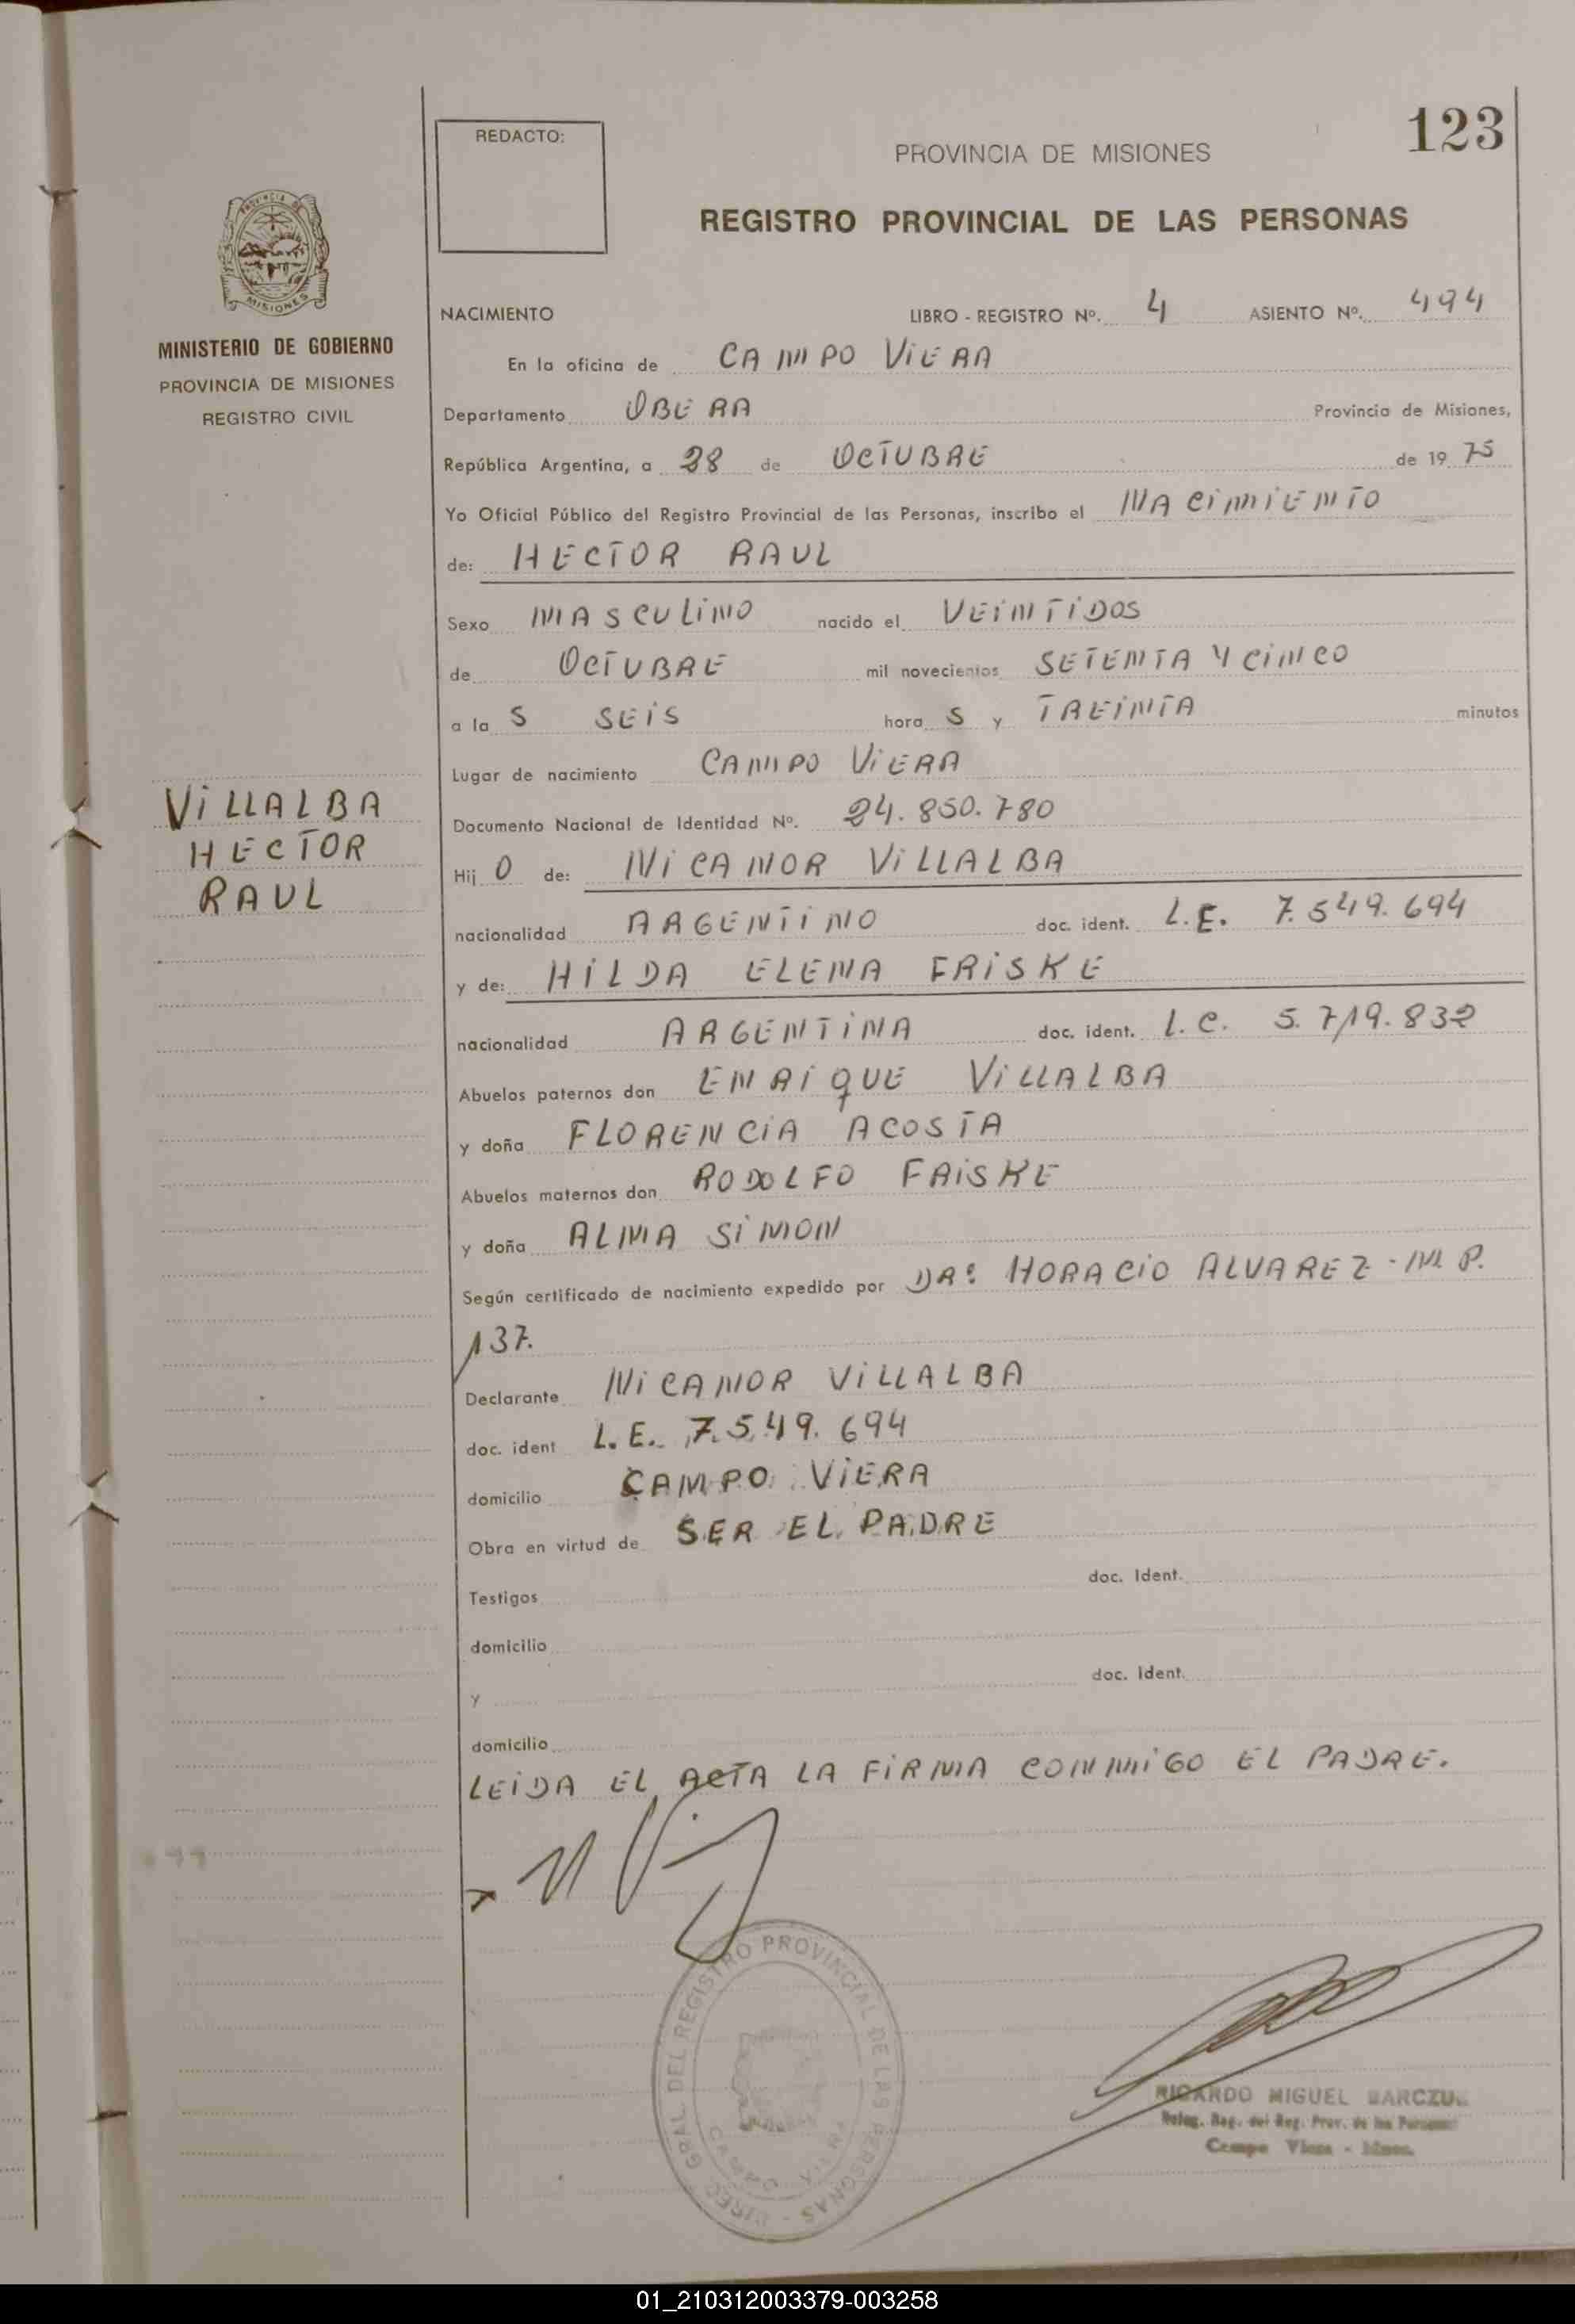 123
REDACTO:
PROVINCIA DE MISIONES
REGISTRO PROVINCIAL DE LAS PERSONAS
PROVINCIA DE
MISIONES
MINISTERIO DE GOBIERNO
PROVINCIA DE MISIONES
REGISTRO CIVIL
VILLALBA
HECTOR
RAUL
NACIMIENTO LIBRO - REGISTRO Nº. 4 ASIENTO Nº. 494
En la oficina de CAMPO VIERA
Departamento OBERA Provincia de Misiones,
República Argentina, a 28 de OCTUBRE de 19 75
Yo Oficial Público del Registro Provincial de las Personas, inscribo el NACIMIENTO
de: HECTOR RAUL
Sexo MASCULINO nacido el VEINTIDOS
de OCTUBRE mil novecientos SETENTA Y CINCO
a la S SEIS hora S y TREINTA minutos
Lugar de nacimiento CAMPO VIERA
Documento Nacional de Identidad Nº. 24.850.780
Hij O de: NICANOR VILLALBA
nacionalidad ARGENTINO doc. ident. L.E. 7.549.694
y de: HILDA ELENA FRISKE
nacionalidad ARGENTINA doc. ident. L.C. 5.719.832
Abuelos paternos don ENRIQUE VILLALBA
y doña FLORENCIA ACOSTA
Abuelos maternos don RODOLFO FRISKE
y doña ALMA SIMON
Según certificado de nacimiento expedido por DR: HORACIO ALVAREZ - M.P.
137.
Declarante NICANOR VILLALBA
doc. ident L.E. 7.549.694
domicilio CAMPO VIERA
Obra en virtud de SER EL PADRE
Testigos doc. Ident.
domicilio
y doc. Ident.
domicilio
LEIDA EL ACTA LA FIRMA CONMIGO EL PADRE.
DIREC. GRAL DEL REGISTRO PROVINCIAL DE LAS PERSONAS
CAMPO VIERA
RICARDO MIGUEL
Deleg. Reg. del Reg. Prov. de las Personas
Campo Viera - Mnes.
01_210312003379-003258